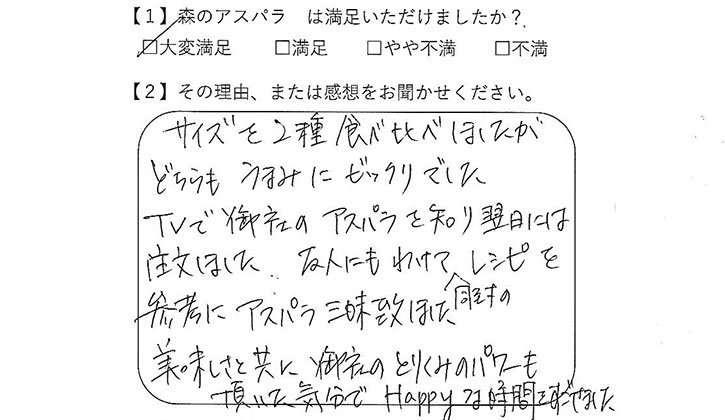 【1】森のアスパラ は満足いただけましたか？
☑大変満足 □満足 □やや不満 □不満
【2】その理由、または感想をお聞かせください。
サイズを2種食べ比べしましたが
どちらも うまみに ビックリでした
TVで御社のアスパラを知り翌日には
注文しました 友人にもわけて レシピを
参考に アスパラ三昧致しました 同封の
美味しさと共に 御社のとりくみのパワーも
頂いた気分で Happyな時間を過ごせました